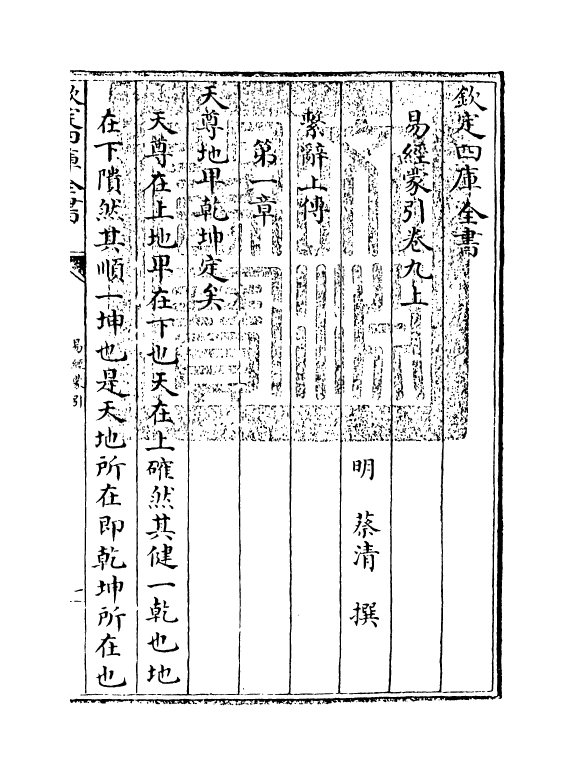 欽定四庫全書
易經蒙引卷九上
明 蔡清 撰
繫辭上傳
第一章
天尊地卑乾坤定矣
天尊在上地卑在下也天在上確然其健一乾也地
在下隤然其順一坤也是天地所在即乾坤所在也
欽定四庫全書
易經蒙引